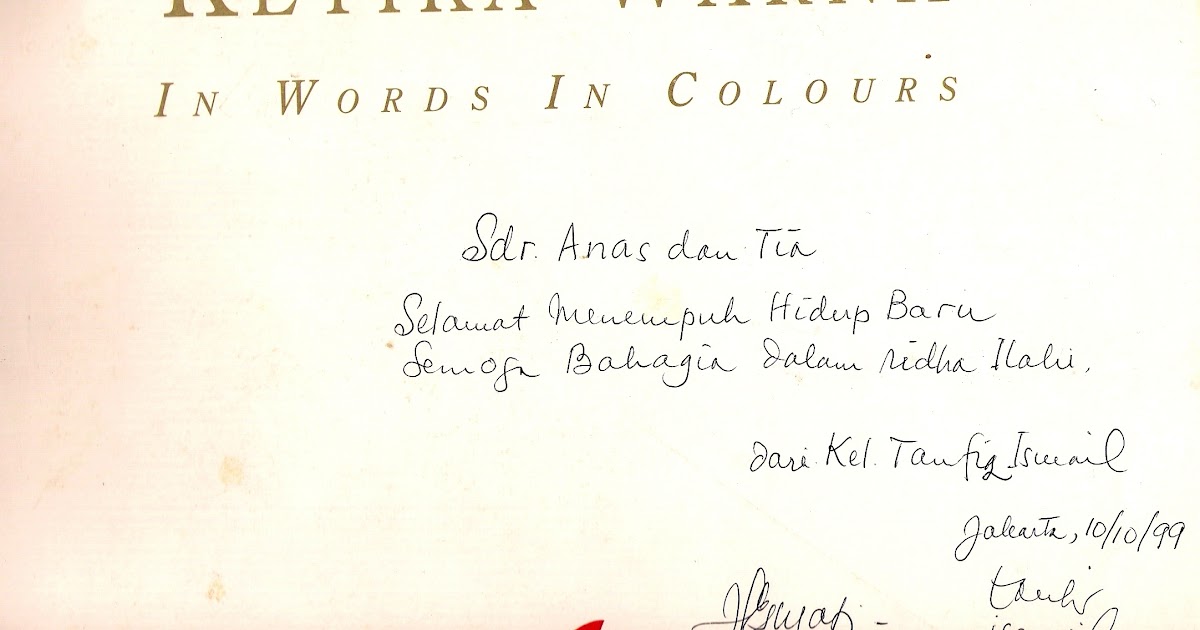 KETIKA WARNA
IN WORDS IN COLOURS
Sdr. Anas dan Tia
Selamat Menempuh Hidup Baru
Semoga Bahagia dalam ridha Ilahi,
dari Kel. Taufiq Ismail
Jakarta, 10/10/99
taufiq
ismail